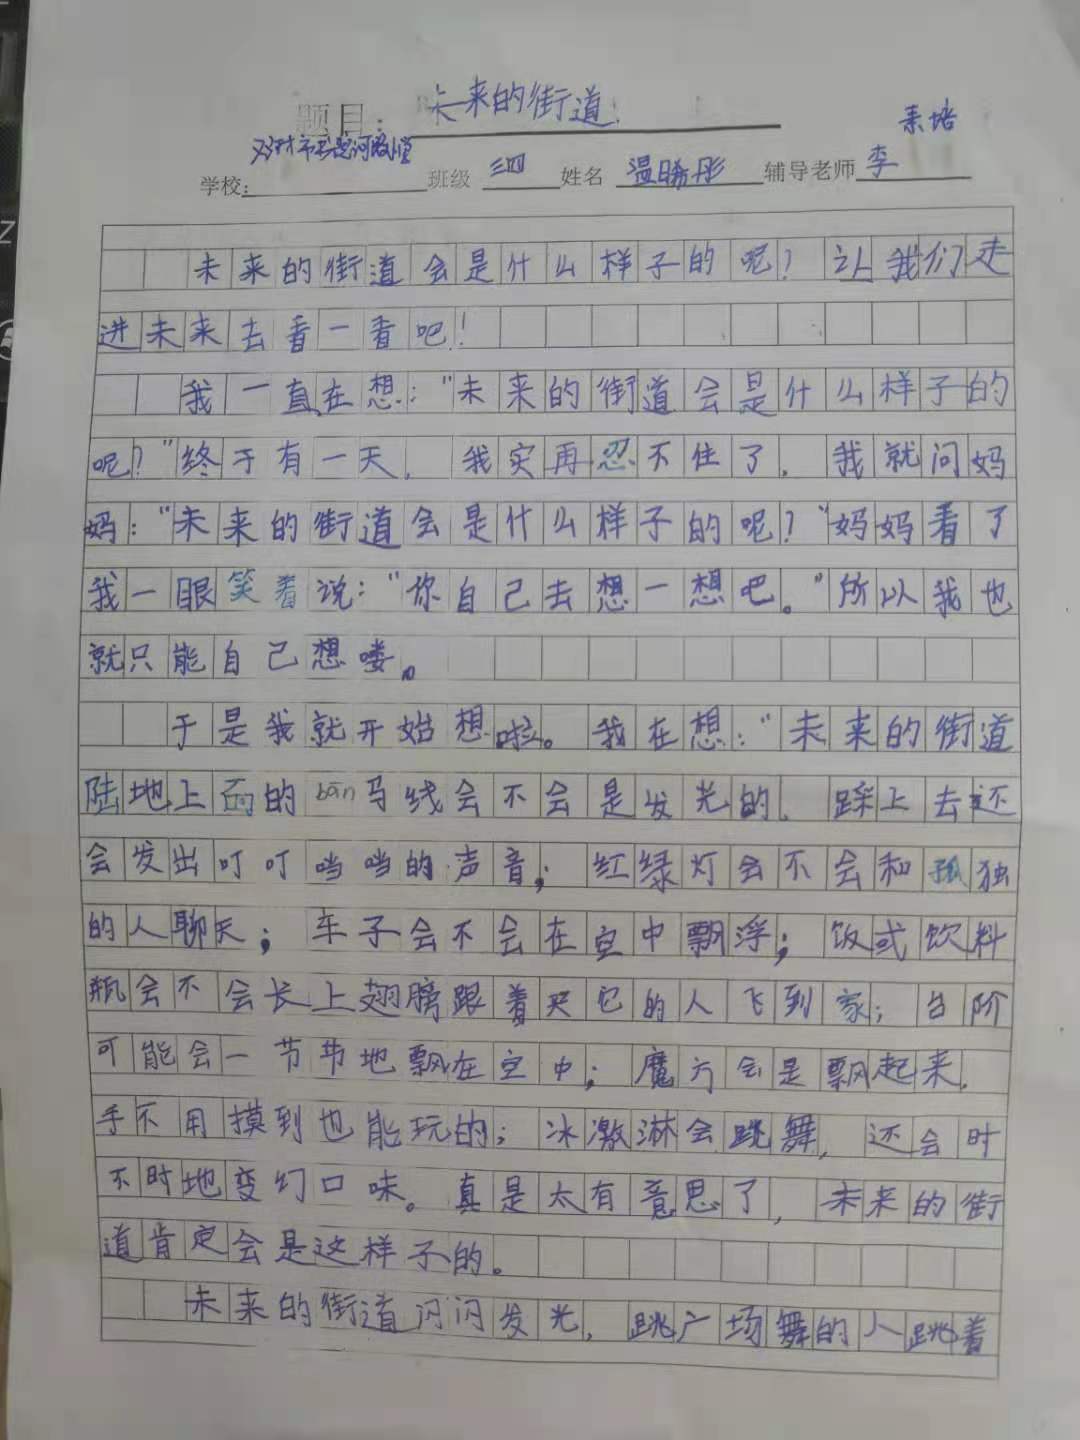 题目：未来的街道
素培
学校： 班级 三四 姓名 温晞彤 辅导老师 李
未来的街道会是什么样子的呢？让我们走
进未来去看一看吧！
我一直在想：“未来的街道会是什么样子的
呢？”终于有一天，我实再忍不住了，我就问妈
妈：“未来的街道会是什么样子的呢？”妈妈看了
我一眼笑着说：“你自己去想一想吧。”所以我也
就只能自己想喽。
于是我就开始想啦。我在想：“未来的街道
陆地上面的bān马线会不会是发光的，踩上去还
会发出叮叮当当的声音；红绿灯会不会和孤独
的人聊天；车子会不会在空中飘浮；饭或饮料
瓶会不会长上翅膀跟着买它的人飞到家；台阶
可能会一节节地飘在空中；魔方会是飘起来，
手不用摸到也能玩的；冰激淋会跳舞，还会时
不时地变幻口味。真是太有意思了，未来的街
道肯定会是这样子的。
未来的街道闪闪发光，跳广场舞的人跳着